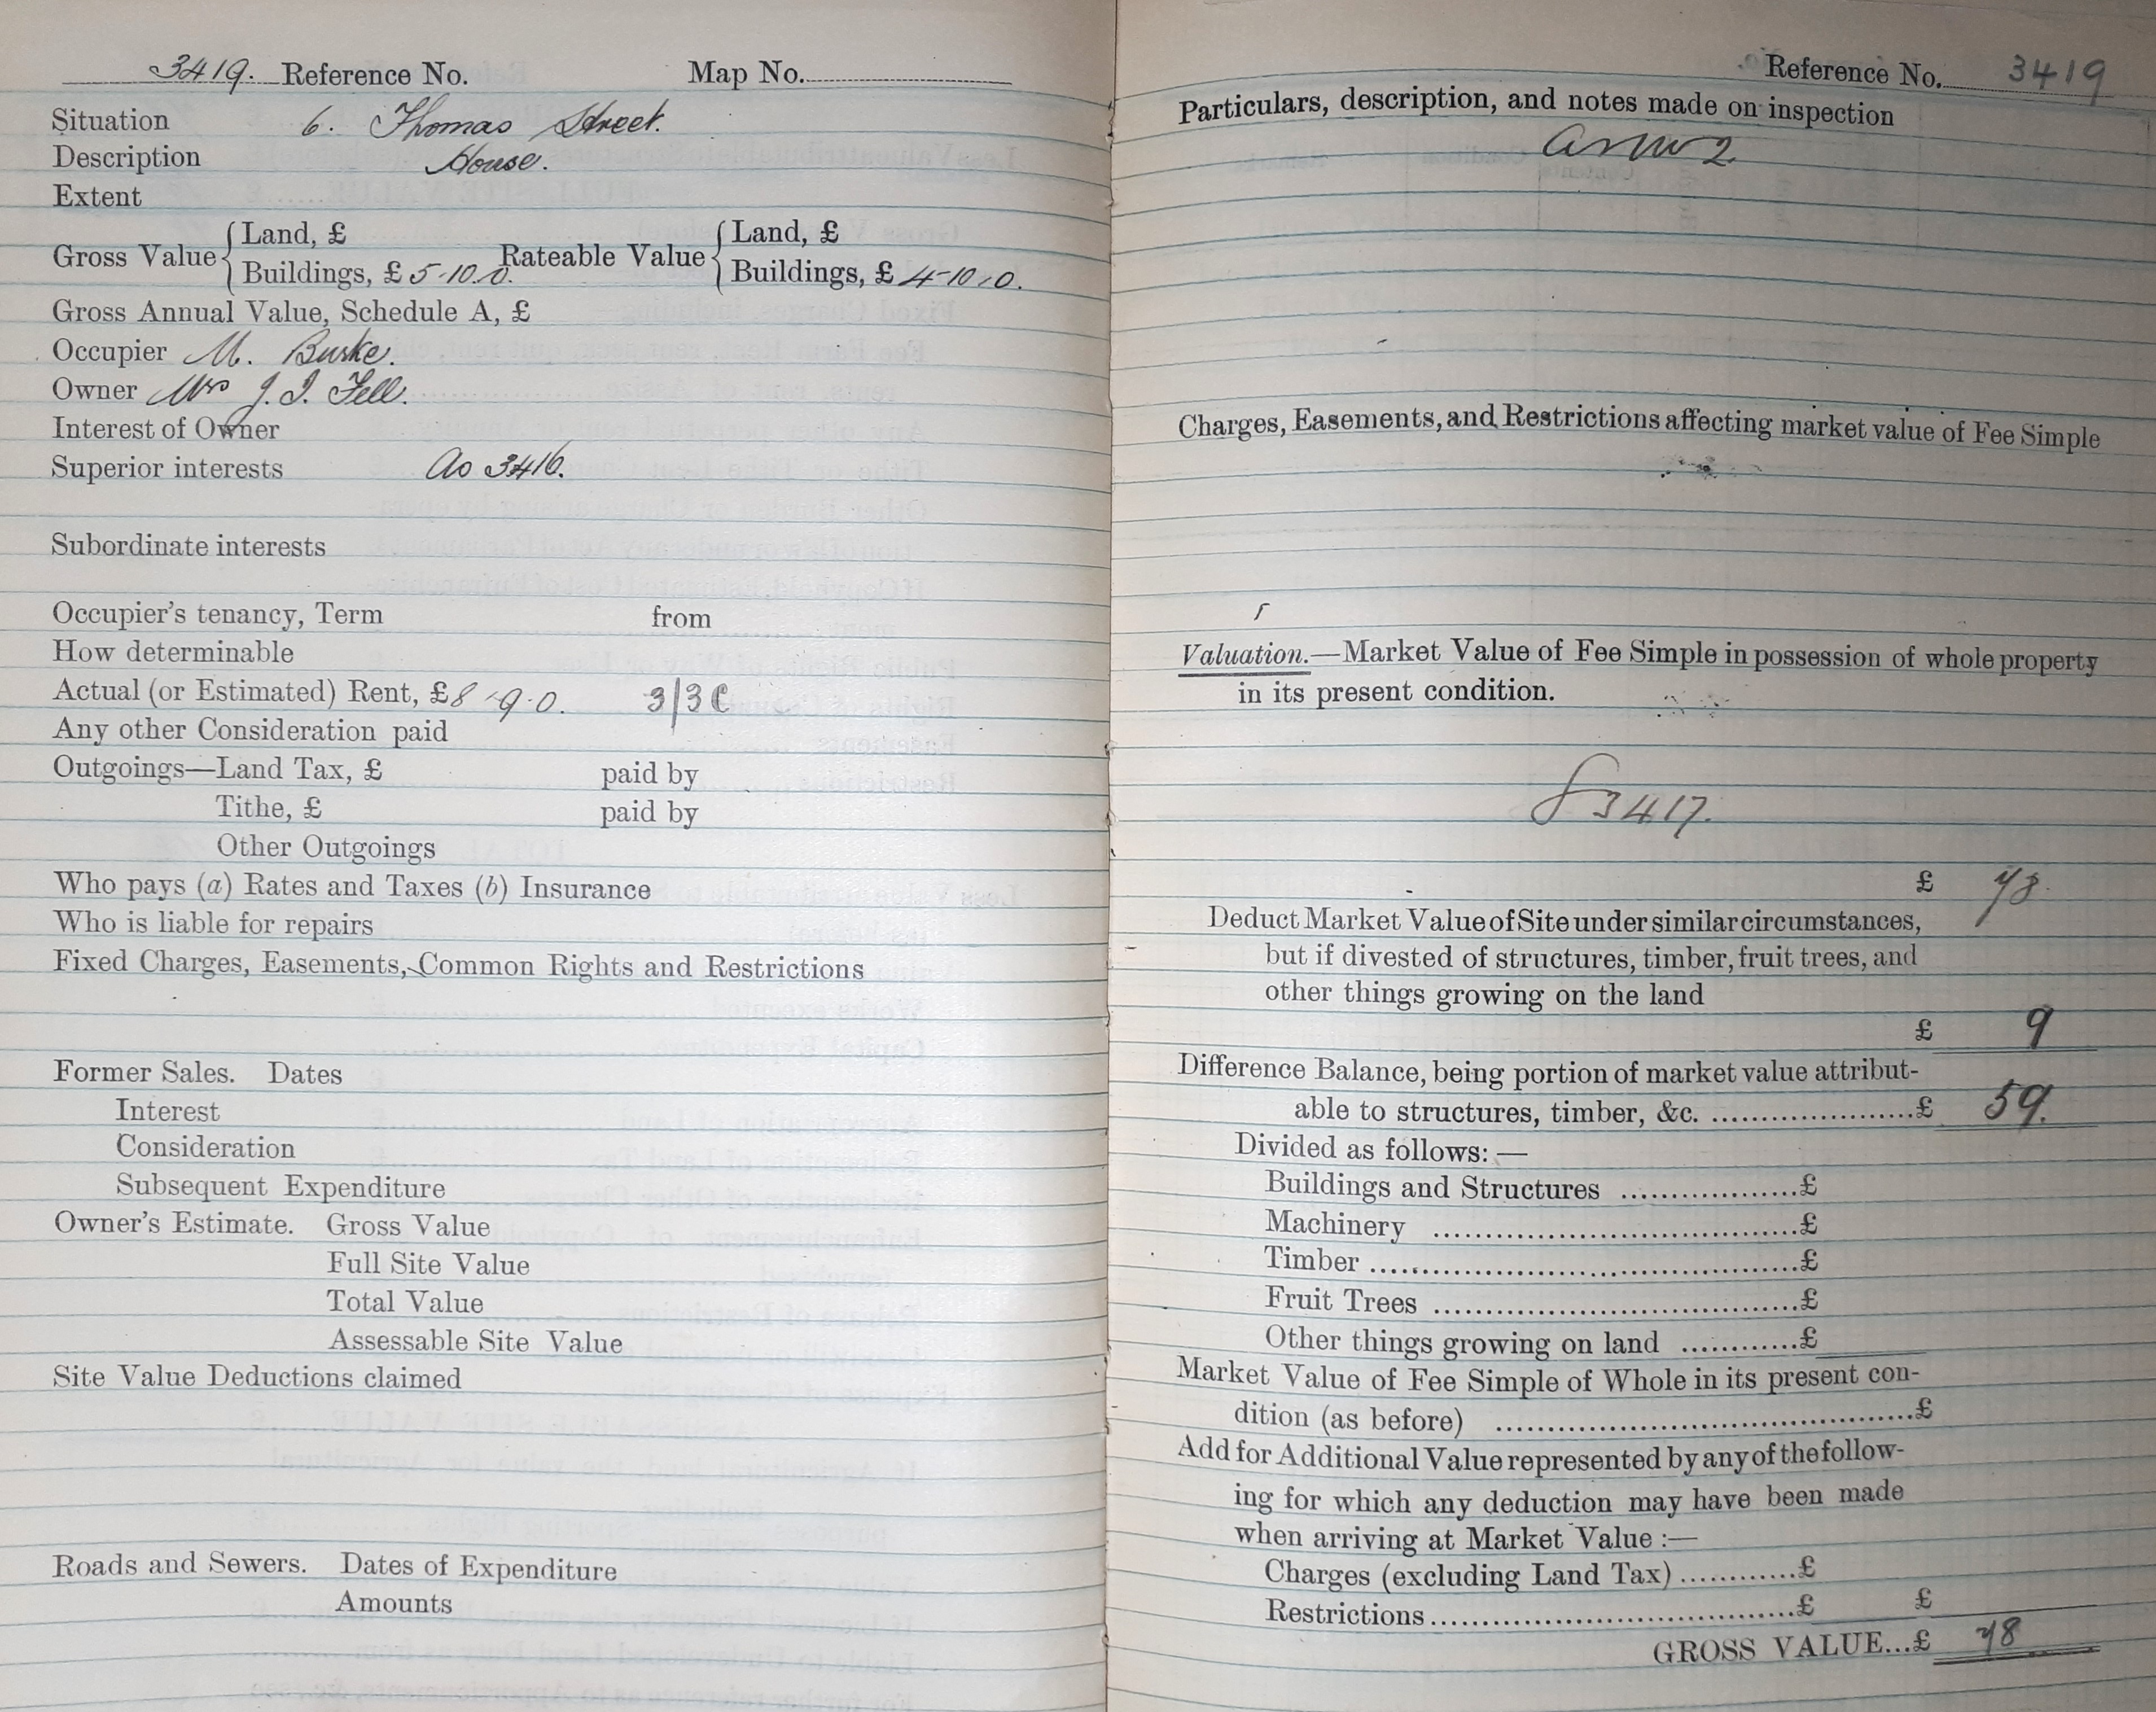 3419. Reference No. Map No.
Situation 6. Thomas Street.
Description House.
Extent
Gross Value { Land, £ Rateable Value { Land, £
Buildings, £ 5-10.0. Buildings, £ 4-10.0.
Gross Annual Value, Schedule A, £
Occupier M. Burke.
Owner Mrs J. I. Fell.
Interest of Owner
Superior interests As 3416.
Subordinate interests
Occupier's tenancy, Term from
How determinable
Actual (or Estimated) Rent, £8-9-0. 3/3
Any other Consideration paid
Outgoings—Land Tax, £ paid by
Tithe, £ paid by
Other Outgoings
Who pays (a) Rates and Taxes (b) Insurance
Who is liable for repairs
Fixed Charges, Easements, Common Rights and Restrictions
Former Sales. Dates
Interest
Consideration
Subsequent Expenditure
Owner's Estimate. Gross Value
Full Site Value
Total Value
Assessable Site Value
Site Value Deductions claimed
Roads and Sewers. Dates of Expenditure
Amounts
Reference No. 3419
Particulars, description, and notes made on inspection
Charges, Easements, and Restrictions affecting market value of Fee Simple
Valuation.—Market Value of Fee Simple in possession of whole property
in its present condition.
3417.
£
Deduct Market Value of Site under similar circumstances,
but if divested of structures, timber, fruit trees, and
other things growing on the land
£ 9
Difference Balance, being portion of market value attribut-
able to structures, timber, &c. ....................£ 59.
Divided as follows:—
Buildings and Structures ..................£
Machinery ..................£
Timber ..................£
Fruit Trees ..................£
Other things growing on land ............£
Market Value of Fee Simple of Whole in its present con-
dition (as before) ..................£
Add for Additional Value represented by any of the follow-
ing for which any deduction may have been made
when arriving at Market Value :—
Charges (excluding Land Tax) ............£
Restrictions ..................£ £
GROSS VALUE...£